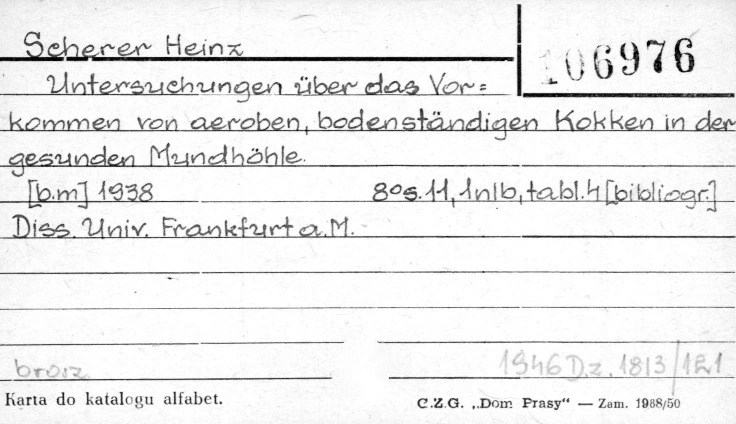 Scherer Heinz
106976
Untersuchungen über das Vor=
kommen von aeroben, bodenständigen Kokken in der
gesunden Mundhöhle.
[b.m] 1938 8os. 11, 1nlb, tabl. 4 [bibliogr.]
Diss. Univ. Frankfurt a. M.
brosz
1946 D.z. 1813/121
Karta do katalogu alfabet.
C.Z.G. „Dom Prasy“ — Zam. 1988/50